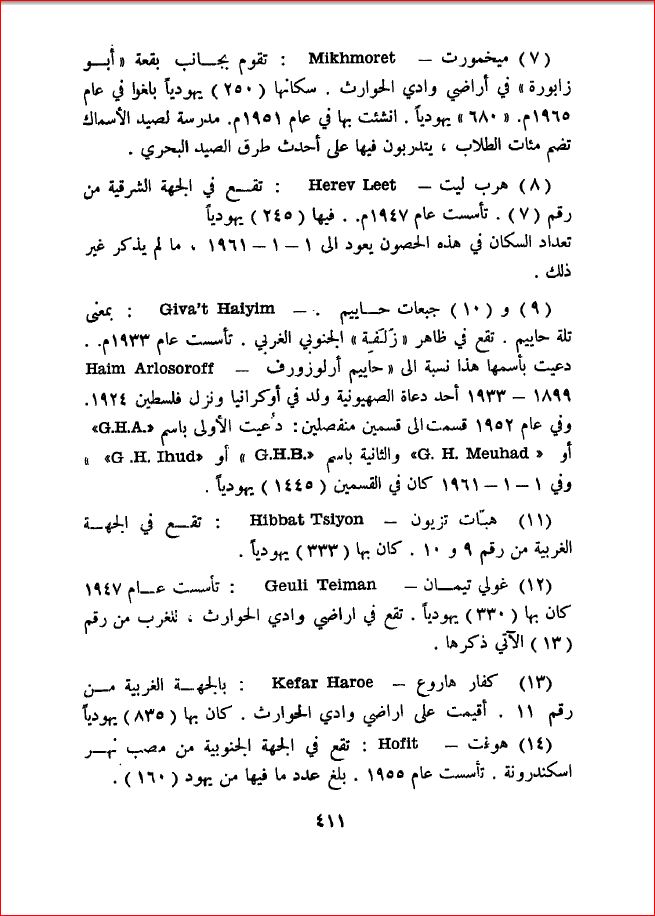 (٧) ميخمورت — Mikhmoret : تقوم بجانب بقعة «أبو
زابورة» في أراضي وادي الحوارث . سكانها (٢٥٠) يهودياً بلغوا في عام
١٩٦٥م. «٦٨٠» يهودياً . انشئت بها في عام ١٩٥١م. مدرسة لصيد الأسماك
تضم مئات الطلاب ، يتدربون فيها على أحدث طرق الصيد البحري .
(٨) هرب ليت — Herev Leet : تقع في الجهة الشرقية من
رقم (٧) . تأسست عام ١٩٤٧م. . فيها (٢٤٥) يهودياً
تعداد السكان في هذه الحصون يعود الى ١ — ١ — ١٩٦١ ، ما لم يذكر غير
ذلك .
(٩) و (١٠) جبعات حاييم . — Giva't Haiyim : بمعنى
تلة حاييم . تقع في ظاهر «زلفة» الجنوبي الغربي . تأسست عام ١٩٣٣م. .
دعيت بأسمها هذا نسبة الى «حاييم أرلوزورف — Haim Arlosoroff
١٨٩٩ — ١٩٣٣ أحد دعاة الصهيونية ولد في أوكرانيا ونزل فلسطين ١٩٢٤.
وفي عام ١٩٥٢ قسمت الى قسمين منفصلين : دُعيت الأولى باسم «G.H.A.»
أو «G. H. Meuhad» والثانية باسم «G.H.B.» أو «G .H. Ihud» »
وفي ١ — ١ — ١٩٦١ كان في القسمين (١٤٤٥) يهودياً .
(١١) هبّات تزيون — Hibbat Tsiyon : تقع في الجهة
الغربية من رقم ٩ و ١٠ . كان بها (٣٣٣) يهودياً .
(١٢) غولي تيمان — Geuli Teiman : تأسست عام ١٩٤٧
كان بها (٣٣٠) يهودياً . تقع في اراضي وادي الحوارث ، للغرب من رقم
(١٣) الآتي ذكرها .
(١٣) كفار هاروع — Kefar Haroe : بالجهة الغربية من
رقم ١١ . أقيمت على اراضي وادي الحوارث . كان بها (٨٣٥) يهودياً
(١٤) هوفت — Hofit : تقع في الجهة الجنوبية من مصب نهر
اسكندرونة . تأسست عام ١٩٥٥ . بلغ عدد ما فيها من يهود (١٦٠) .
٤١١